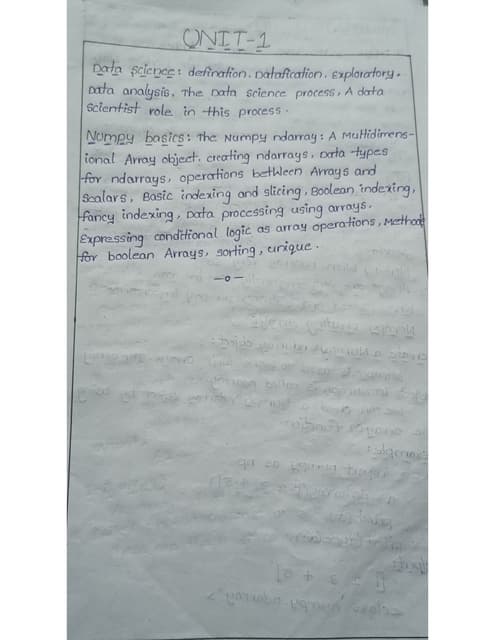 UNIT-1
Data science: defination, Datafication, Exploratory,
Data analysis, The Data science process, A data
scientist role in this process.
Numpy basics: The Numpy ndarray: A Multidimens-
ional Array object, creating ndarrays, Data types
for ndarrays, operations between Arrays and
Scalars, Basic indexing and slicing, Boolean indexing,
fancy indexing, Data processing using arrays.
Expressing conditional logic as array operations, Methods
for boolean Arrays, sorting, unique.
-o-